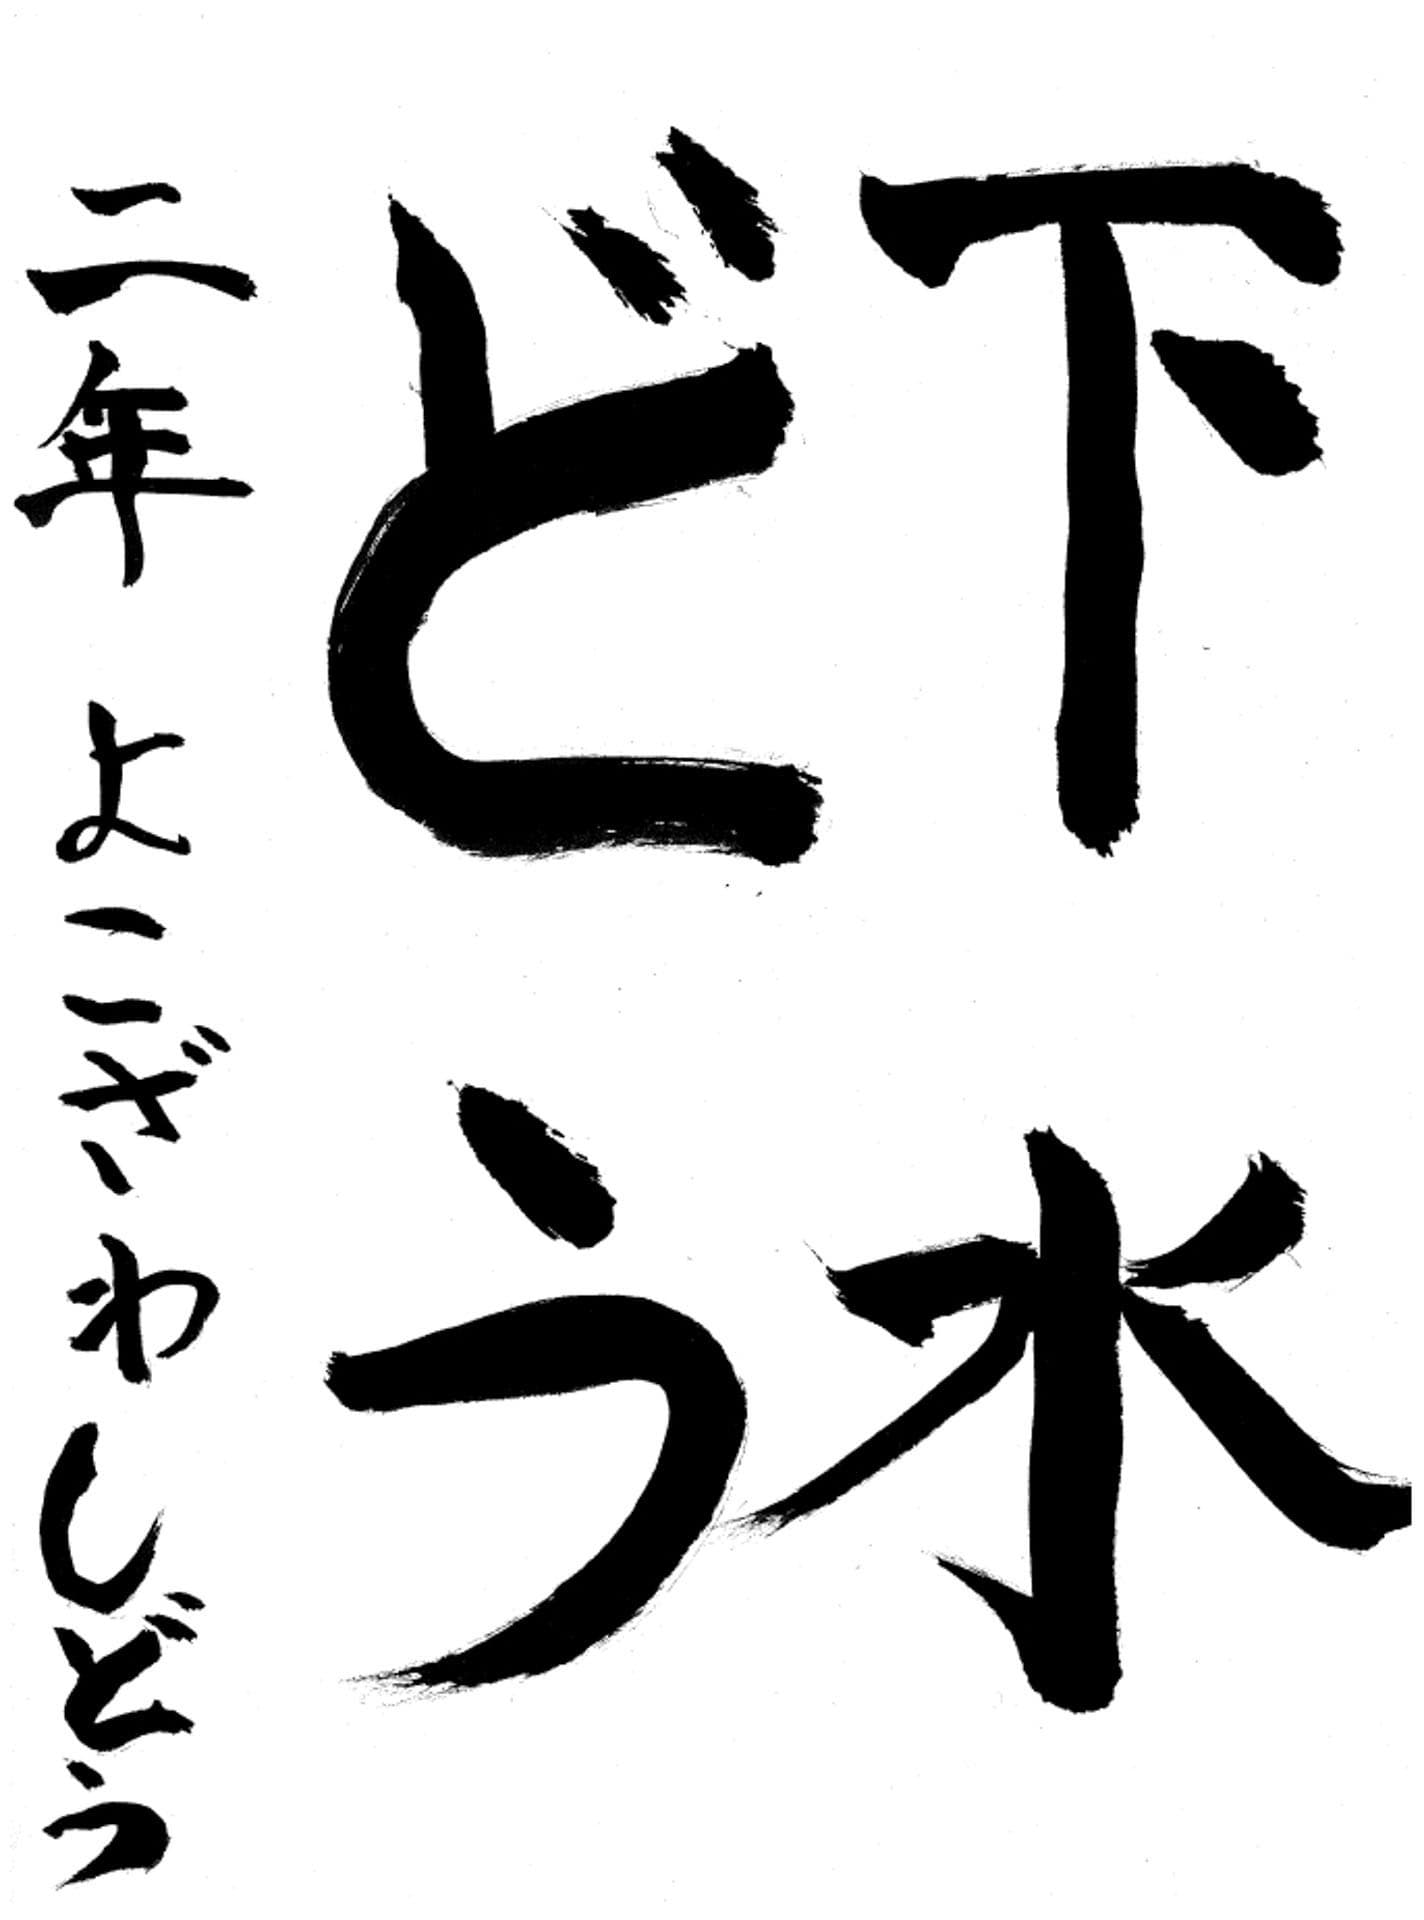 下水
どう
二年 よこざわしどう